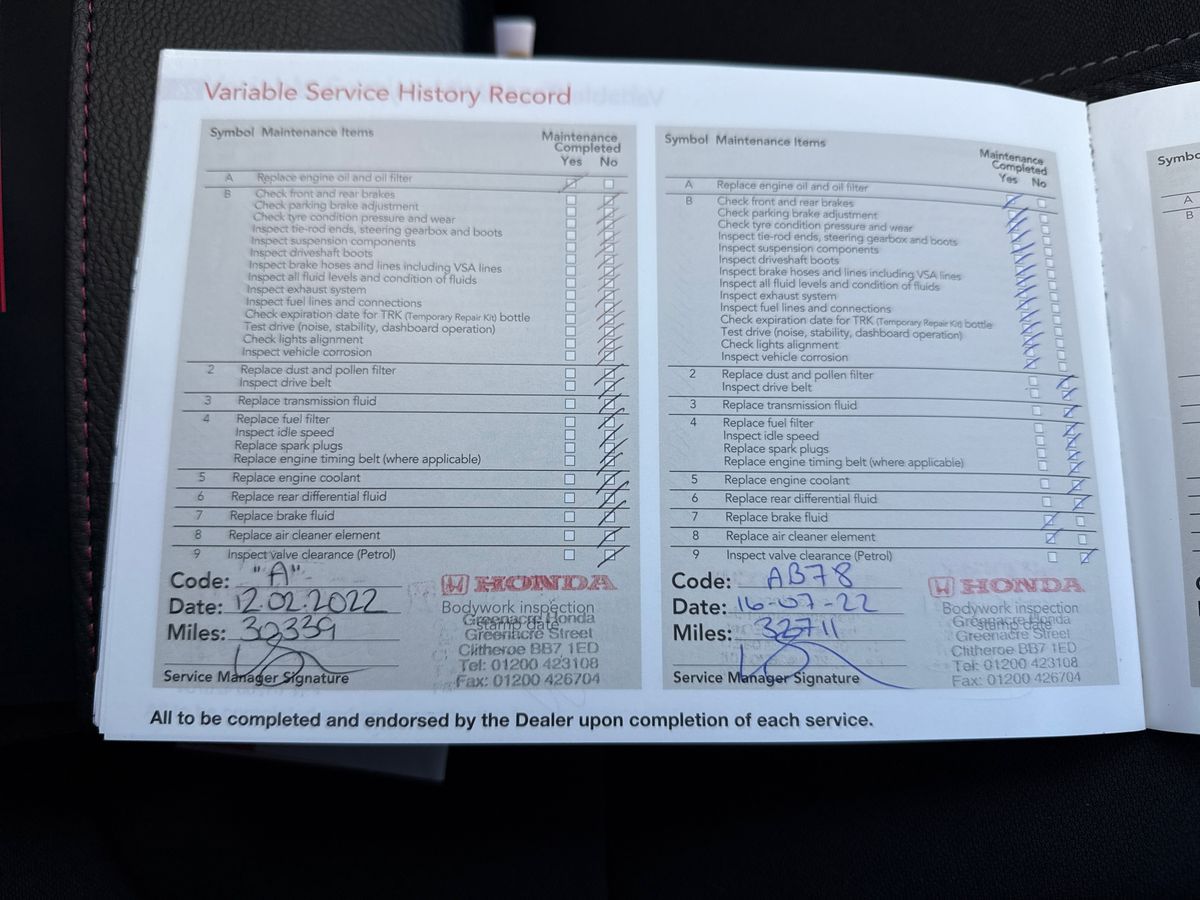 Variable Service History Record
Symbol Maintenance Items
Maintenance
Completed
Yes No
A Replace engine oil and oil filter
B Check front and rear brakes
Check parking brake adjustment
Check tyre condition pressure and wear
Inspect tie-rod ends, steering gearbox and boots
Inspect suspension components
Inspect driveshaft boots
Inspect brake hoses and lines including VSA lines
Inspect all fluid levels and condition of fluids
Inspect exhaust system
Inspect fuel lines and connections
Check expiration date for TRK (Temporary Repair Kit) bottle
Test drive (noise, stability, dashboard operation)
Check lights alignment
Inspect vehicle corrosion
2 Replace dust and pollen filter
Inspect drive belt
3 Replace transmission fluid
4 Replace fuel filter
Inspect idle speed
Replace spark plugs
Replace engine timing belt (where applicable)
5 Replace engine coolant
6 Replace rear differential fluid
7 Replace brake fluid
8 Replace air cleaner element
9 Inspect valve clearance (Petrol)
Code: "A"
Date: 12.02.2022
Miles: 30339
Service Manager Signature
HONDA
Bodywork inspection
stamp date
Greenacre Honda
Greenacre Street
Clitheroe BB7 1ED
Tel: 01200 423108
Fax: 01200 426704
Symbol Maintenance Items
Maintenance
Completed
Yes No
A Replace engine oil and oil filter
B Check front and rear brakes
Check parking brake adjustment
Check tyre condition pressure and wear
Inspect tie-rod ends, steering gearbox and boots
Inspect suspension components
Inspect driveshaft boots
Inspect brake hoses and lines including VSA lines
Inspect all fluid levels and condition of fluids
Inspect exhaust system
Inspect fuel lines and connections
Check expiration date for TRK (Temporary Repair Kit) bottle
Test drive (noise, stability, dashboard operation)
Check lights alignment
Inspect vehicle corrosion
2 Replace dust and pollen filter
Inspect drive belt
3 Replace transmission fluid
4 Replace fuel filter
Inspect idle speed
Replace spark plugs
Replace engine timing belt (where applicable)
5 Replace engine coolant
6 Replace rear differential fluid
7 Replace brake fluid
8 Replace air cleaner element
9 Inspect valve clearance (Petrol)
Code: AB78
Date: 16-07-22
Miles: 32711
Service Manager Signature
HONDA
Bodywork inspection
stamp date
Greenacre Honda
Greenacre Street
Clitheroe BB7 1ED
Tel: 01200 423108
Fax: 01200 426704
All to be completed and endorsed by the Dealer upon completion of each service.
A
B